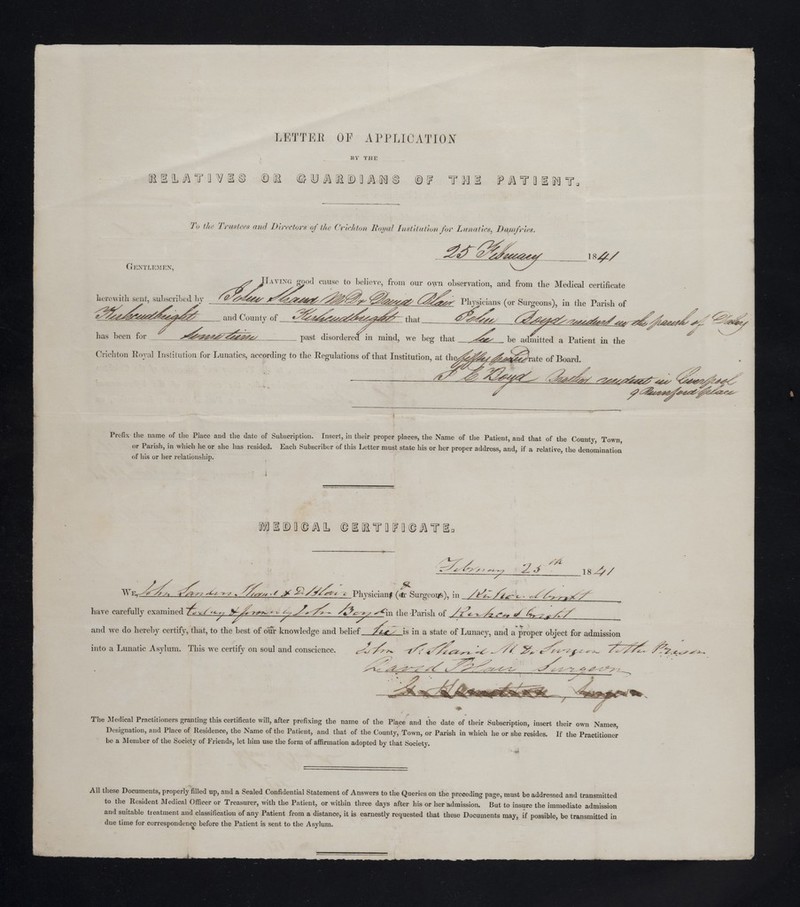 LETTER OF APPLICATION
BY THE
RELATIVES OR GUARDIANS OF THE PATIENT.
To the Trustees and Directors of the Crichton Royal Institution for Lunatics, Dumfries.
25 February 1841
GENTLEMEN,
HAVING good cause to believe, from our own observation, and from the Medical certificate
herewith sent, subscribed by John Shand M.D. & David Blair Physicians (or Surgeons), in the Parish of
Kirkcudbright and County of Kirkcudbright that John Boyd resident in the parish of
has been for some time past disordered in mind, we beg that he be admitted a Patient in the
Crichton Royal Institution for Lunatics, according to the Regulations of that Institution, at the fifty pound rate of Board.
Boyd Brother resident in Liverpool
9 Rumford place
Prefix the name of the Place and the date of Subscription. Insert, in their proper places, the Name of the Patient, and that of the County, Town,
or Parish, in which he or she has resided. Each Subscriber of this Letter must state his or her proper address, and, if a relative, the denomination
of his or her relationship.
MEDICAL CERTIFICATE.
February 25th 1841
WE, John Shand & D. Blair Physicians (or Surgeons), in Kirkcudbright
have carefully examined today & formerly John Boyd in the Parish of Kirkcudbright
and we do hereby certify, that, to the best of our knowledge and belief he is in a state of Lunacy, and a proper object for admission
into a Lunatic Asylum. This we certify on soul and conscience. John S. Shand M.D. Surgeon to the Prison
David Blair Surgeon
Surgeon
The Medical Practitioners granting this certificate will, after prefixing the name of the Place and the date of their Subscription, insert their own Names,
Designation, and Place of Residence, the Name of the Patient, and that of the County, Town, or Parish in which he or she resides. If the Practitioner
be a Member of the Society of Friends, let him use the form of affirmation adopted by that Society.
All these Documents, properly filled up, and a Sealed Confidential Statement of Answers to the Queries on the preceding page, must be addressed and transmitted
to the Resident Medical Officer or Treasurer, with the Patient, or within three days after his or her admission. But to insure the immediate admission
and suitable treatment and classification of any Patient from a distance, it is earnestly requested that these Documents may, if possible, be transmitted in
due time for correspondence before the Patient is sent to the Asylum.